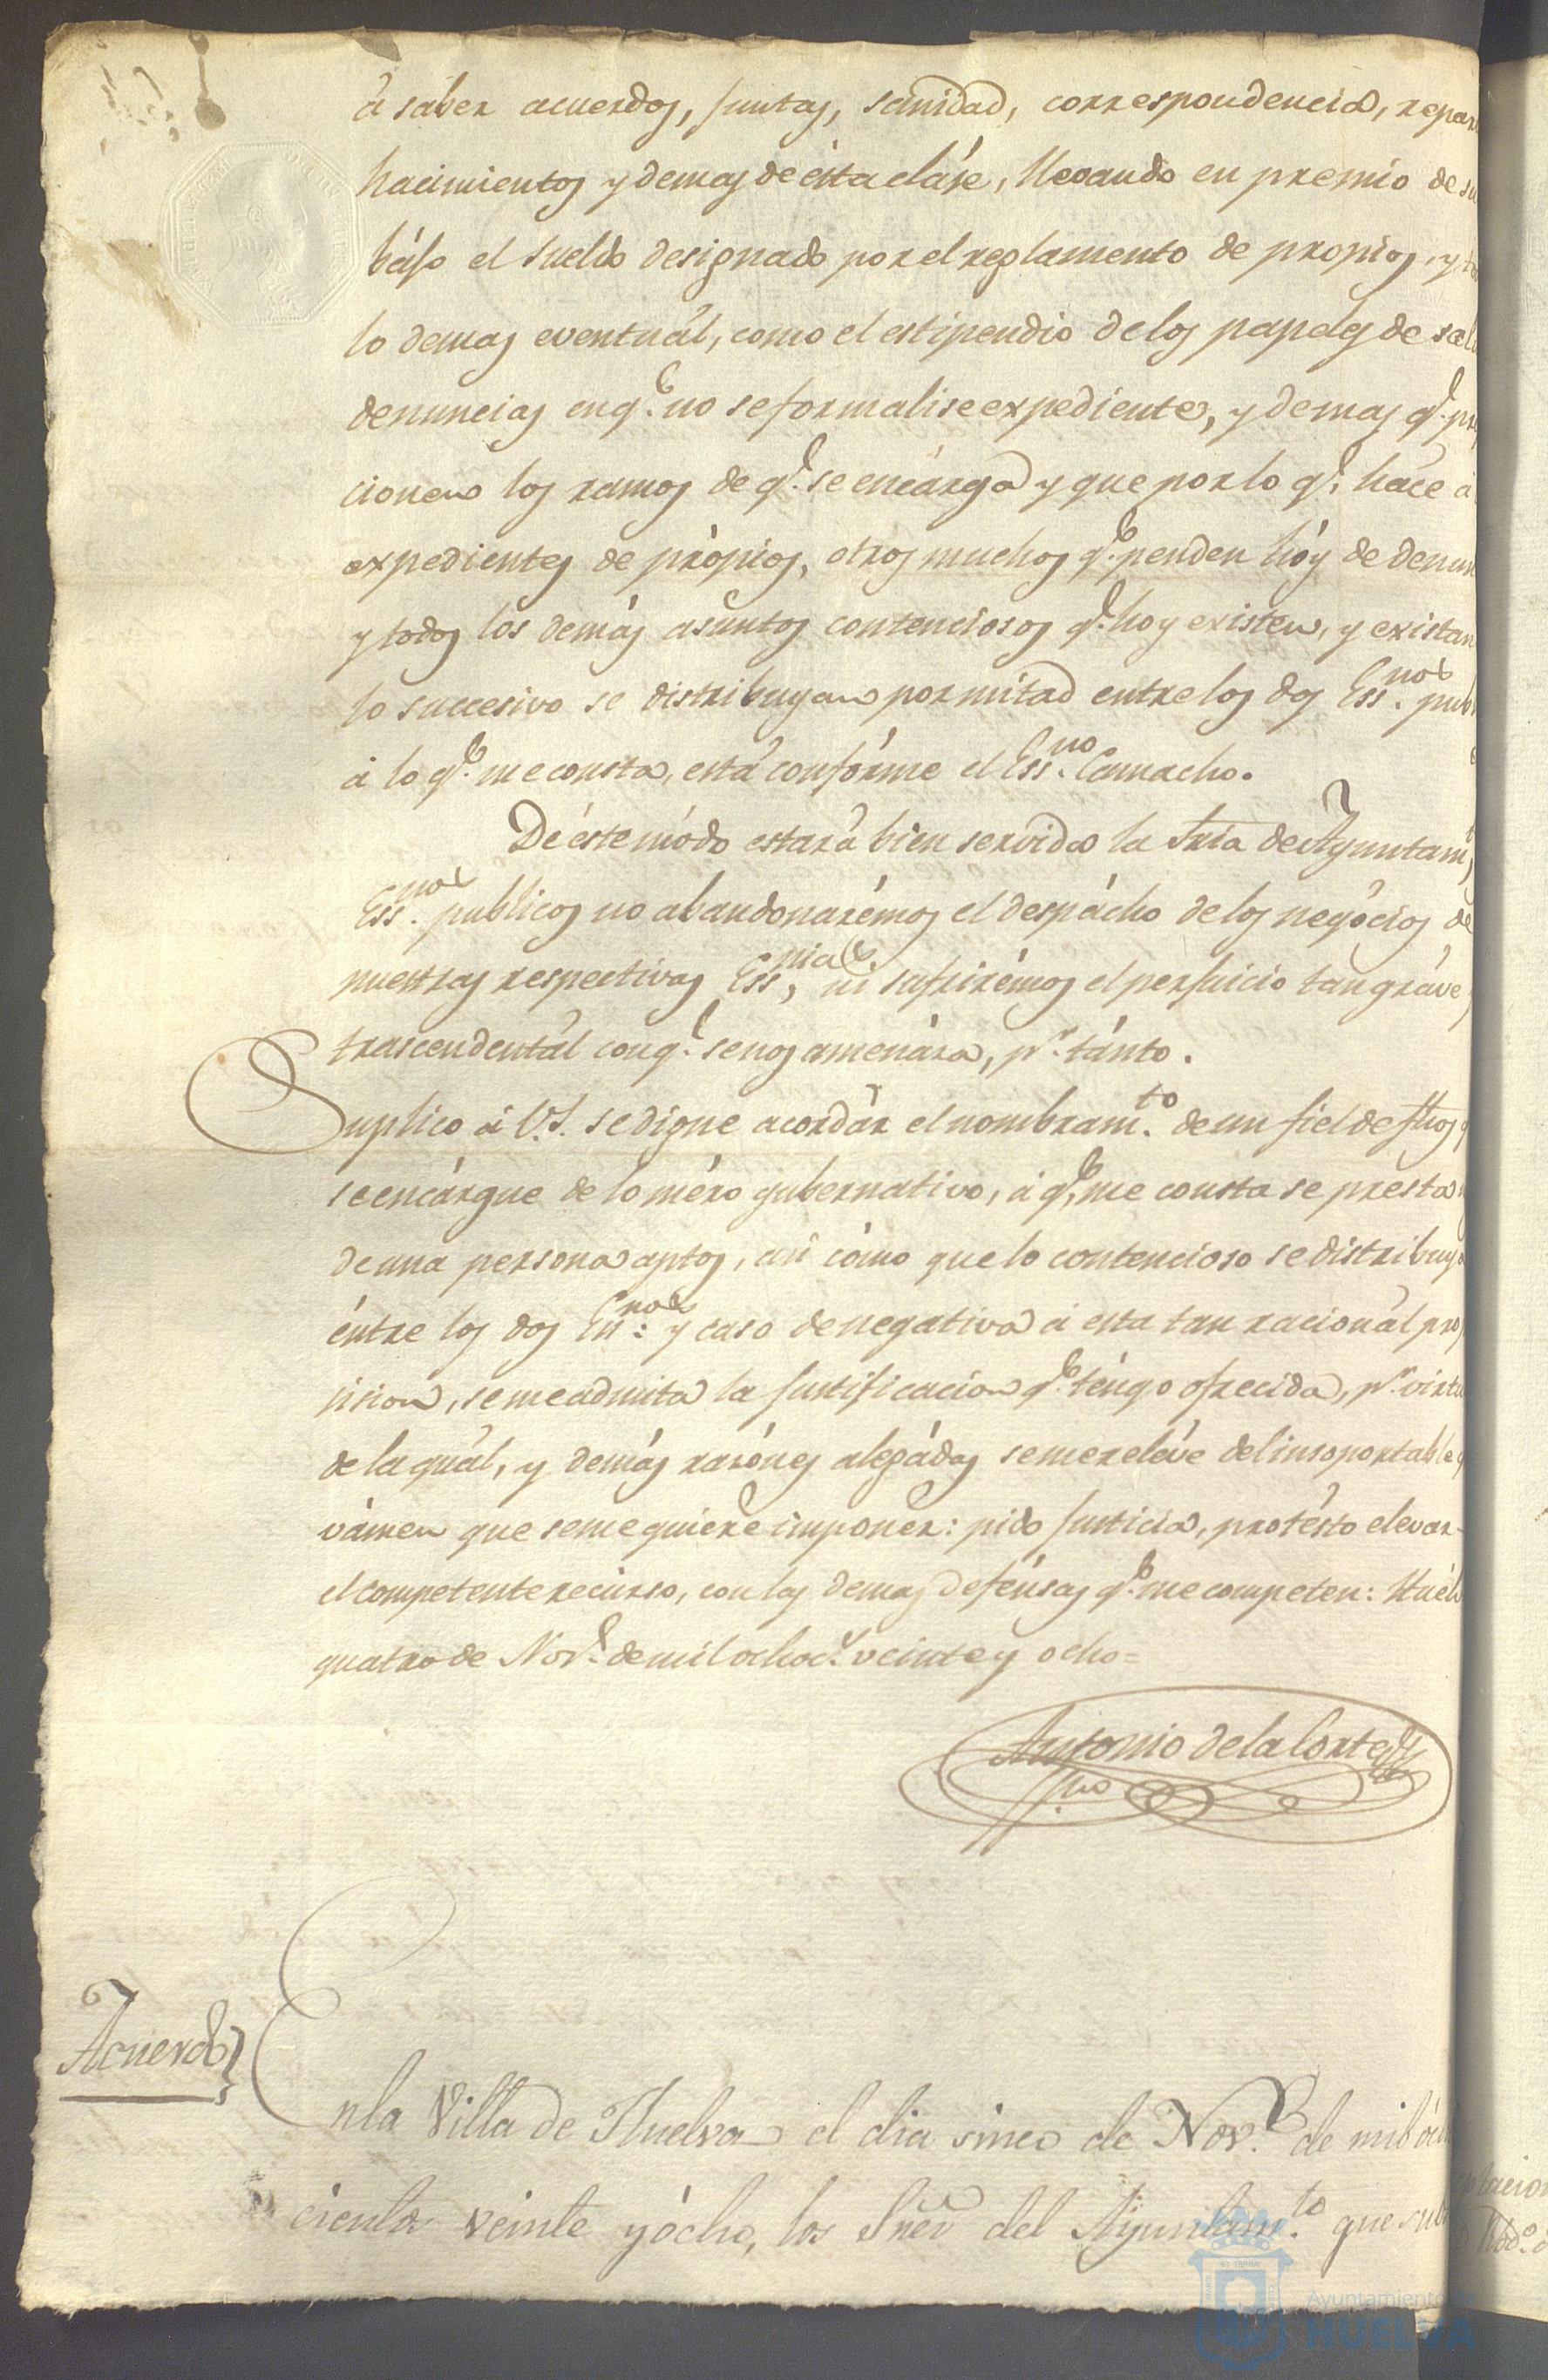 á saber acuerdos, juntas, sanidad, correspondencia, repar
hacimientos y demas de ésta cláse, llevando en premio de su
bájo el sueldo designado por el reglamento de propios, y to
lo demas eventuál, como el estipendio de los papeles de sal
denuncias en q.e no se formalise expediente, y demas q.e pr
cionen los ramos de q.e se encárga y que por lo q.e háce á
expedientes de própios, otros muchos q.e penden hóy de denun
y todos los demás asuntos contenciosos q.e hoy existen, y existan
lo succesivo se distribuyan por mitad entre los dos Ess.nos pub
á lo q.e me consta, está confórme el Ess.no Camacho.
De éste módo estará bien servida la Sria de Ayuntam.t
Ess.nos publicos no abandonarémos el despácho de los negócios de
nuestras respectivas Ess.nias, ni sufrirémos el perjuicio tan gráve
trascendentál con q.e se nos amenáza, p.r tánto.
Suplico á V.S. se digne acordár el nombram.to de un fiel de fhos q
se encárgue de lo méro gubernativo, á q.e me consta se presta
de una persona aptos, así cómo que lo contencioso se distribuya
éntre los dos Ess.nos y caso de negativa á esta tan racionál prop
sision, se me admita la justificacion q.e téngo ofrecida, p.r virtu
de la quál, y demás razónes alegádas se me reléve del insoportable g
vámen que se me quiere imponer: pido justicia, protésto elevar
el competente recúrso, con las demas defénsas q.e me competen: Huelv
quatro de Nov.e de mil ochoc.s veinte y ocho=
Antonio de la Corte
Acuerdo}
En la Villa de Huelva el dia sinco de Nov.e de mil óch
cientos veinte y ócho, los Sres del Ayuntam.to que sub
Ayuntamiento de
HUELVA